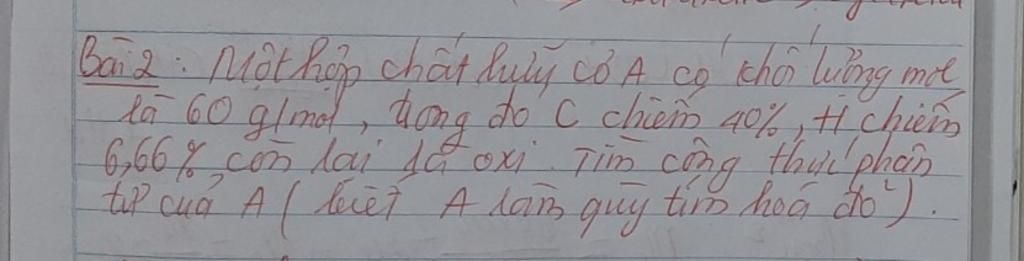 Bài 2 : Một hợp chất hữu cơ A có khối lượng mol
là 60 g/mol, trong đó C chiếm 40%, H chiếm
6,66%, còn lại là oxi. Tìm công thức phân
tử của A ( biết A làm quỳ tím hoá đỏ ).